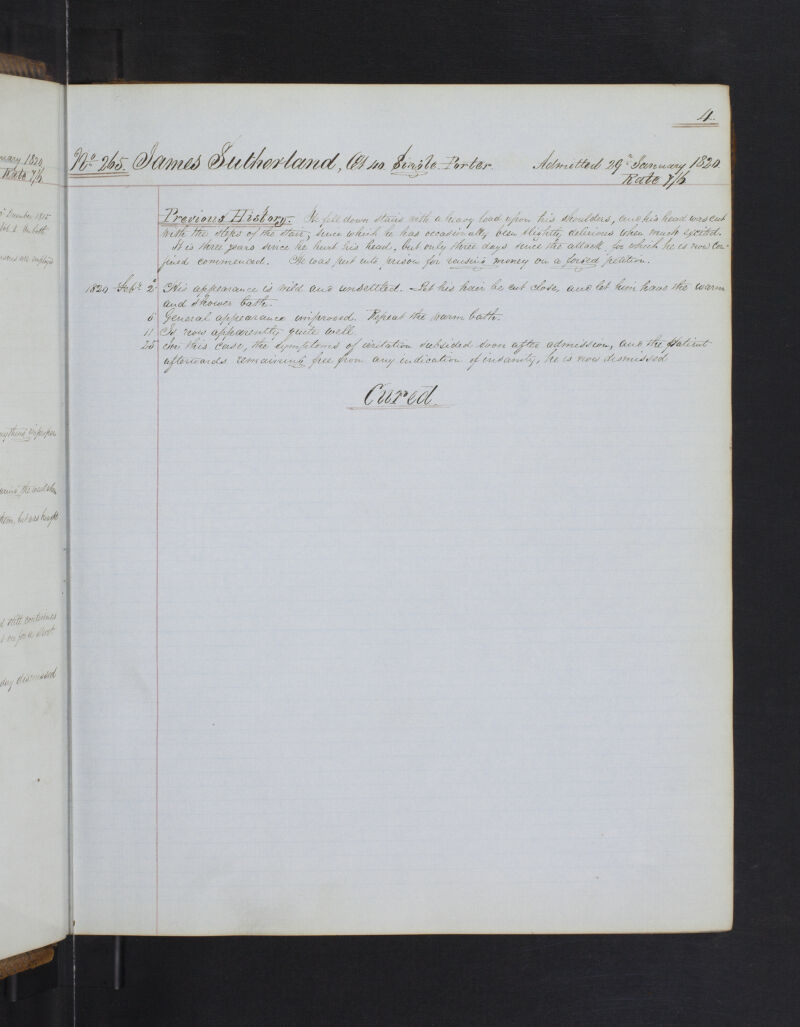 4.
No. 265. James Sutherland, Aet 40. Single. Porter. Admitted 29th January 1820.
Rate 7/6
Previous History. He fell down stairs with a heavy load upon his shoulders, and his head was cut
with the steps of the stair, since which he has occasionally been slightly delirious when much excited.
It is three years since he hurt his head, but only three days since the attack, for which he is now con-
fined commenced. He was put into prison for raising money on a forged petition.
1820 Feby. 2 His appearance is wild and unsettled. Let his hair be cut close, and let him have the warm
and shower bath.
6 General appearance improved. Repeat the warm bath.
11 Is now apparently quite well.
25 In this case, the symptoms of irritation subsided soon after admission, and the patient
afterwards remaining free from any indication of insanity, he is now dismissed
Cured.
nuary 1820
Rate 7/6
December 1815
anything improper
still continues
on for a short
day dismissed